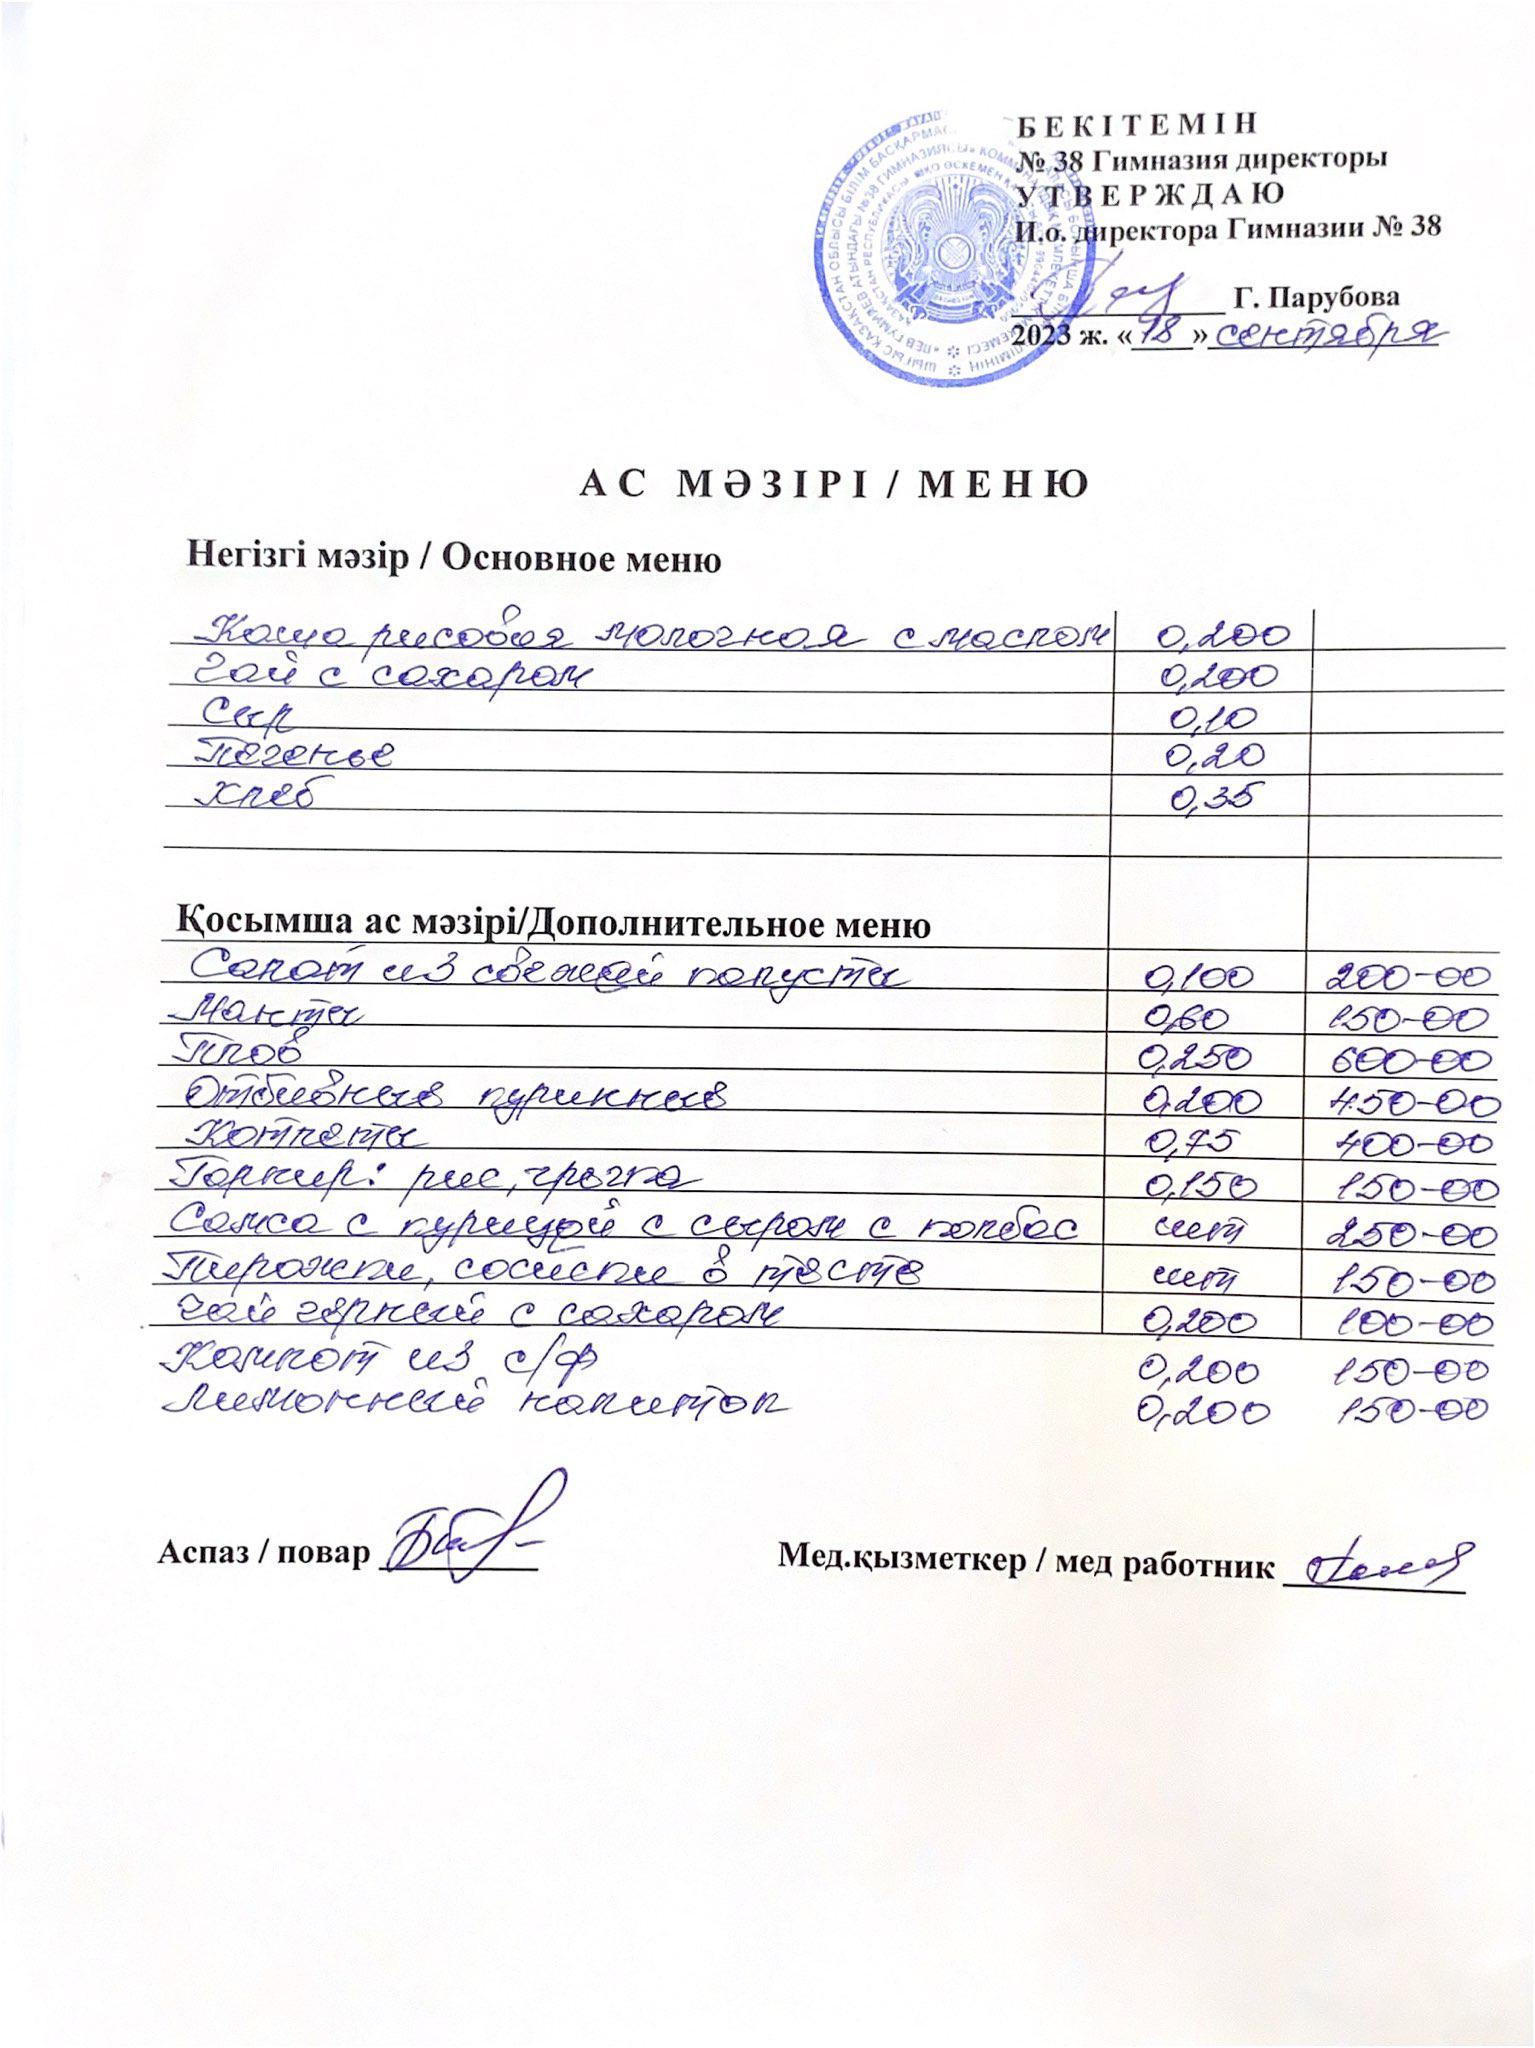 БЕКІТЕМІН
№ 38 Гимназия директоры
УТВЕРЖДАЮ
И.о. директора Гимназии № 38
Г. Парубова
2023 ж. «18» сентября
АС МӘЗІРІ / МЕНЮ
Негізгі мәзір / Основное меню
Каша рисовая молочная с маслом 0,200
Чай с сахаром 0,200
Сыр 0,10
Печенье 0,20
Хлеб 0,35
Қосымша ас мәзірі/Дополнительное меню
Салат из свежей капусты 0,100 200-00
Манты 0,60 150-00
Плов 0,250 600-00
Отбивные куринные 0,200 450-00
Котлеты 0,75 400-00
Гарнир: рис, гречка 0,150 150-00
Самса с курицей с сыром с колбас шт 250-00
Пирожки, сосиски в тесте шт 150-00
Чай черный с сахаром 0,200 100-00
Компот из с/ф 0,200 150-00
Лимонный напиток 0,200 150-00
Аспаз / повар
Мед.қызметкер / мед работник